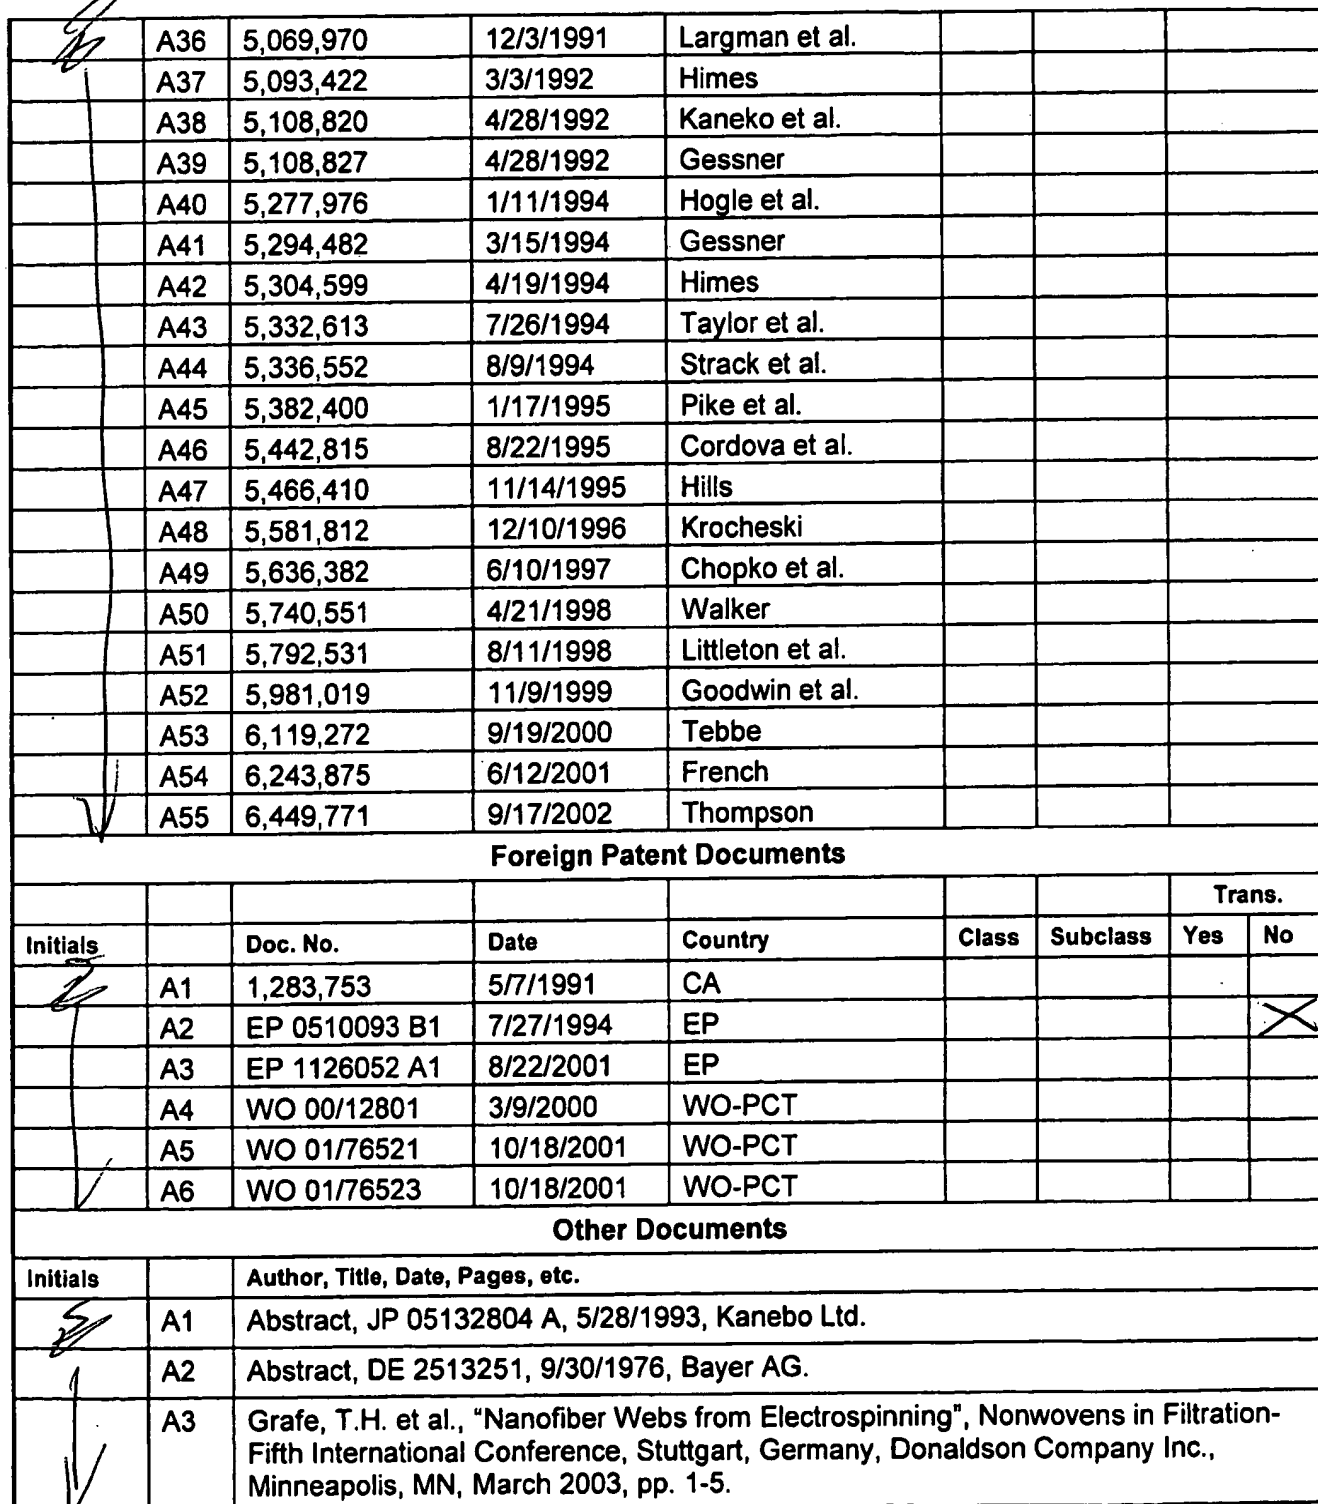 A36 5,069,970 12/3/1991 Largman et al.
A37 5,093,422 3/3/1992 Himes
A38 5,108,820 4/28/1992 Kaneko et al.
A39 5,108,827 4/28/1992 Gessner
A40 5,277,976 1/11/1994 Hogle et al.
A41 5,294,482 3/15/1994 Gessner
A42 5,304,599 4/19/1994 Himes
A43 5,332,613 7/26/1994 Taylor et al.
A44 5,336,552 8/9/1994 Strack et al.
A45 5,382,400 1/17/1995 Pike et al.
A46 5,442,815 8/22/1995 Cordova et al.
A47 5,466,410 11/14/1995 Hills
A48 5,581,812 12/10/1996 Krocheski
A49 5,636,382 6/10/1997 Chopko et al.
A50 5,740,551 4/21/1998 Walker
A51 5,792,531 8/11/1998 Littleton et al.
A52 5,981,019 11/9/1999 Goodwin et al.
A53 6,119,272 9/19/2000 Tebbe
A54 6,243,875 6/12/2001 French
A55 6,449,771 9/17/2002 Thompson
Foreign Patent Documents
Trans.
Initials Doc. No. Date Country Class Subclass Yes No
A1 1,283,753 5/7/1991 CA
A2 EP 0510093 B1 7/27/1994 EP X
A3 EP 1126052 A1 8/22/2001 EP
A4 WO 00/12801 3/9/2000 WO-PCT
A5 WO 01/76521 10/18/2001 WO-PCT
A6 WO 01/76523 10/18/2001 WO-PCT
Other Documents
Initials Author, Title, Date, Pages, etc.
A1 Abstract, JP 05132804 A, 5/28/1993, Kanebo Ltd.
A2 Abstract, DE 2513251, 9/30/1976, Bayer AG.
A3 Grafe, T.H. et al., "Nanofiber Webs from Electrospinning", Nonwovens in Filtration-
Fifth International Conference, Stuttgart, Germany, Donaldson Company Inc.,
Minneapolis, MN, March 2003, pp. 1-5.